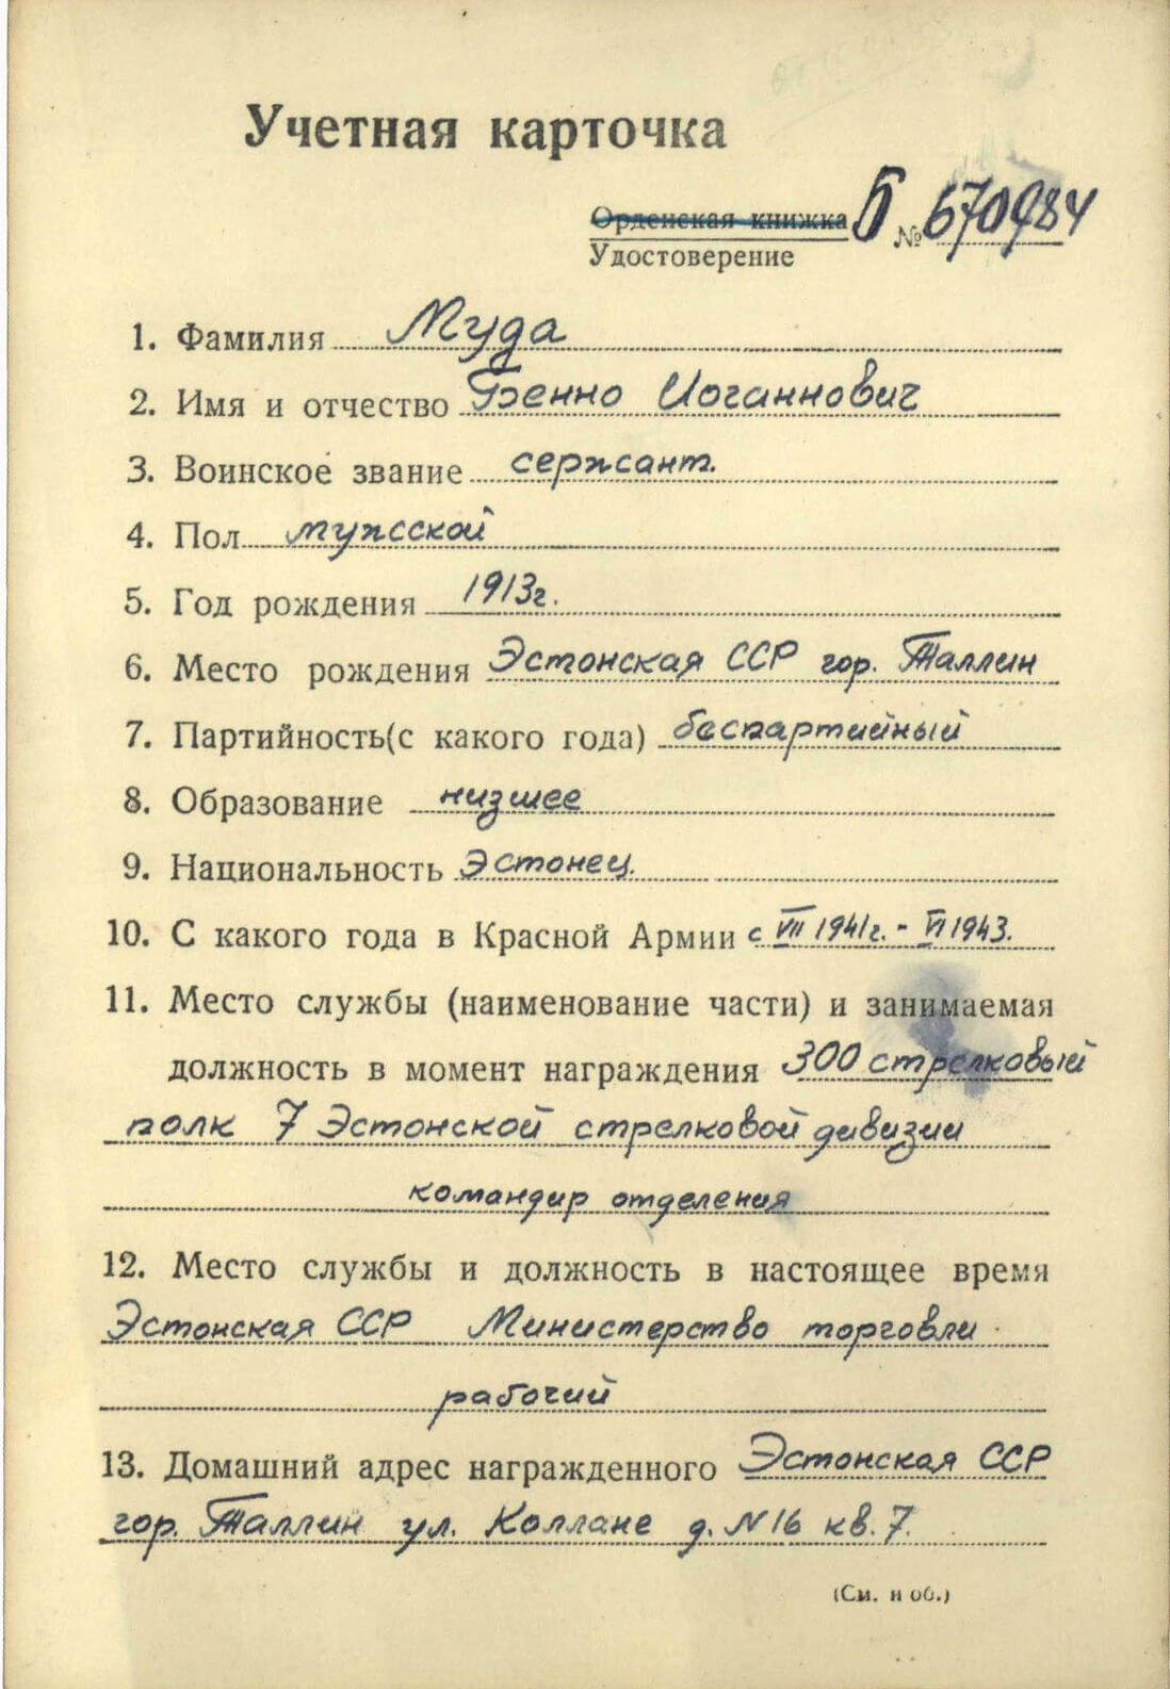 Учетная карточка
Орденская книжка Б № 670984
Удостоверение
1. Фамилия Муда
2. Имя и отчество Бенно Иоганнович
3. Воинское звание сержант.
4. Пол мужской
5. Год рождения 1913г.
6. Место рождения Эстонская ССР гор. Таллин
7. Партийность(с какого года) беспартийный
8. Образование низшее
9. Национальность Эстонец.
10. С какого года в Красной Армии с VII 1941г. - VI 1943.
11. Место службы (наименование части) и занимаемая
должность в момент награждения 300 стрелковый
полк 7 Эстонской стрелковой дивизии
командир отделения
12. Место службы и должность в настоящее время
Эстонская ССР Министерство торговли
рабочий
13. Домашний адрес награжденного Эстонская ССР
гор. Таллин ул. Коллане д. N 16 кв. 7.
(См. н об.)